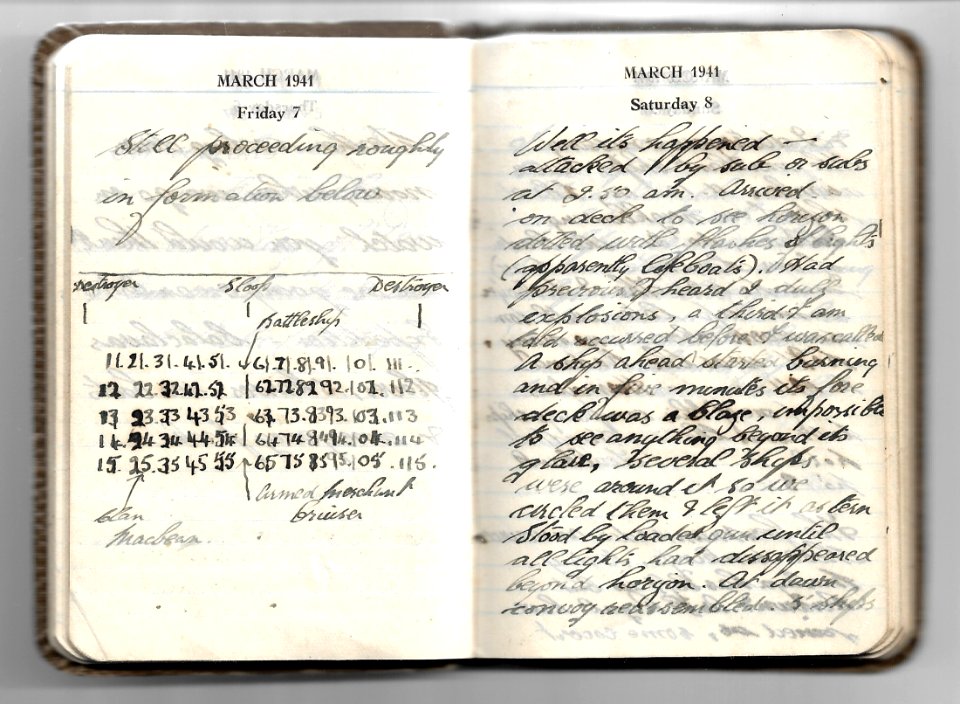 MARCH 1941
Friday 7
Still proceeding roughly
in formation below
Destroyer Sloop Destroyer
Battleship
11. 21. 31. 41. 51. 61. 71. 81. 91. 101. 111.
12 22 32 42. 52 62 72 82 92. 102. 112
13 23 33 43 53 63. 73. 83 93. 103. 113
14. 24 34 44 54 64 74 84 94. 104. 114
15. 25. 35 45 55 65 75 85 95. 105. 115.
Clan
Macbean.
Armed Merchant
Cruiser
MARCH 1941
Saturday 8
Well it's happened —
attacked by sub or subs
at 2.50 am. Arrived
on deck to see horizon
dotted with flashes & lights
(apparently lifeboats). Had
previously heard 2 dull
explosions, a third I am
told occurred before I was called
A ship ahead started burning
and in five minutes its fore
deck was a blaze impossible
to see anything beyond its
glare, Several ships
were around it so we
circled them & left it astern
Stood by loaded gun until
all lights had dissappeared
beyond horizon. At dawn
convoy reassembled & ships